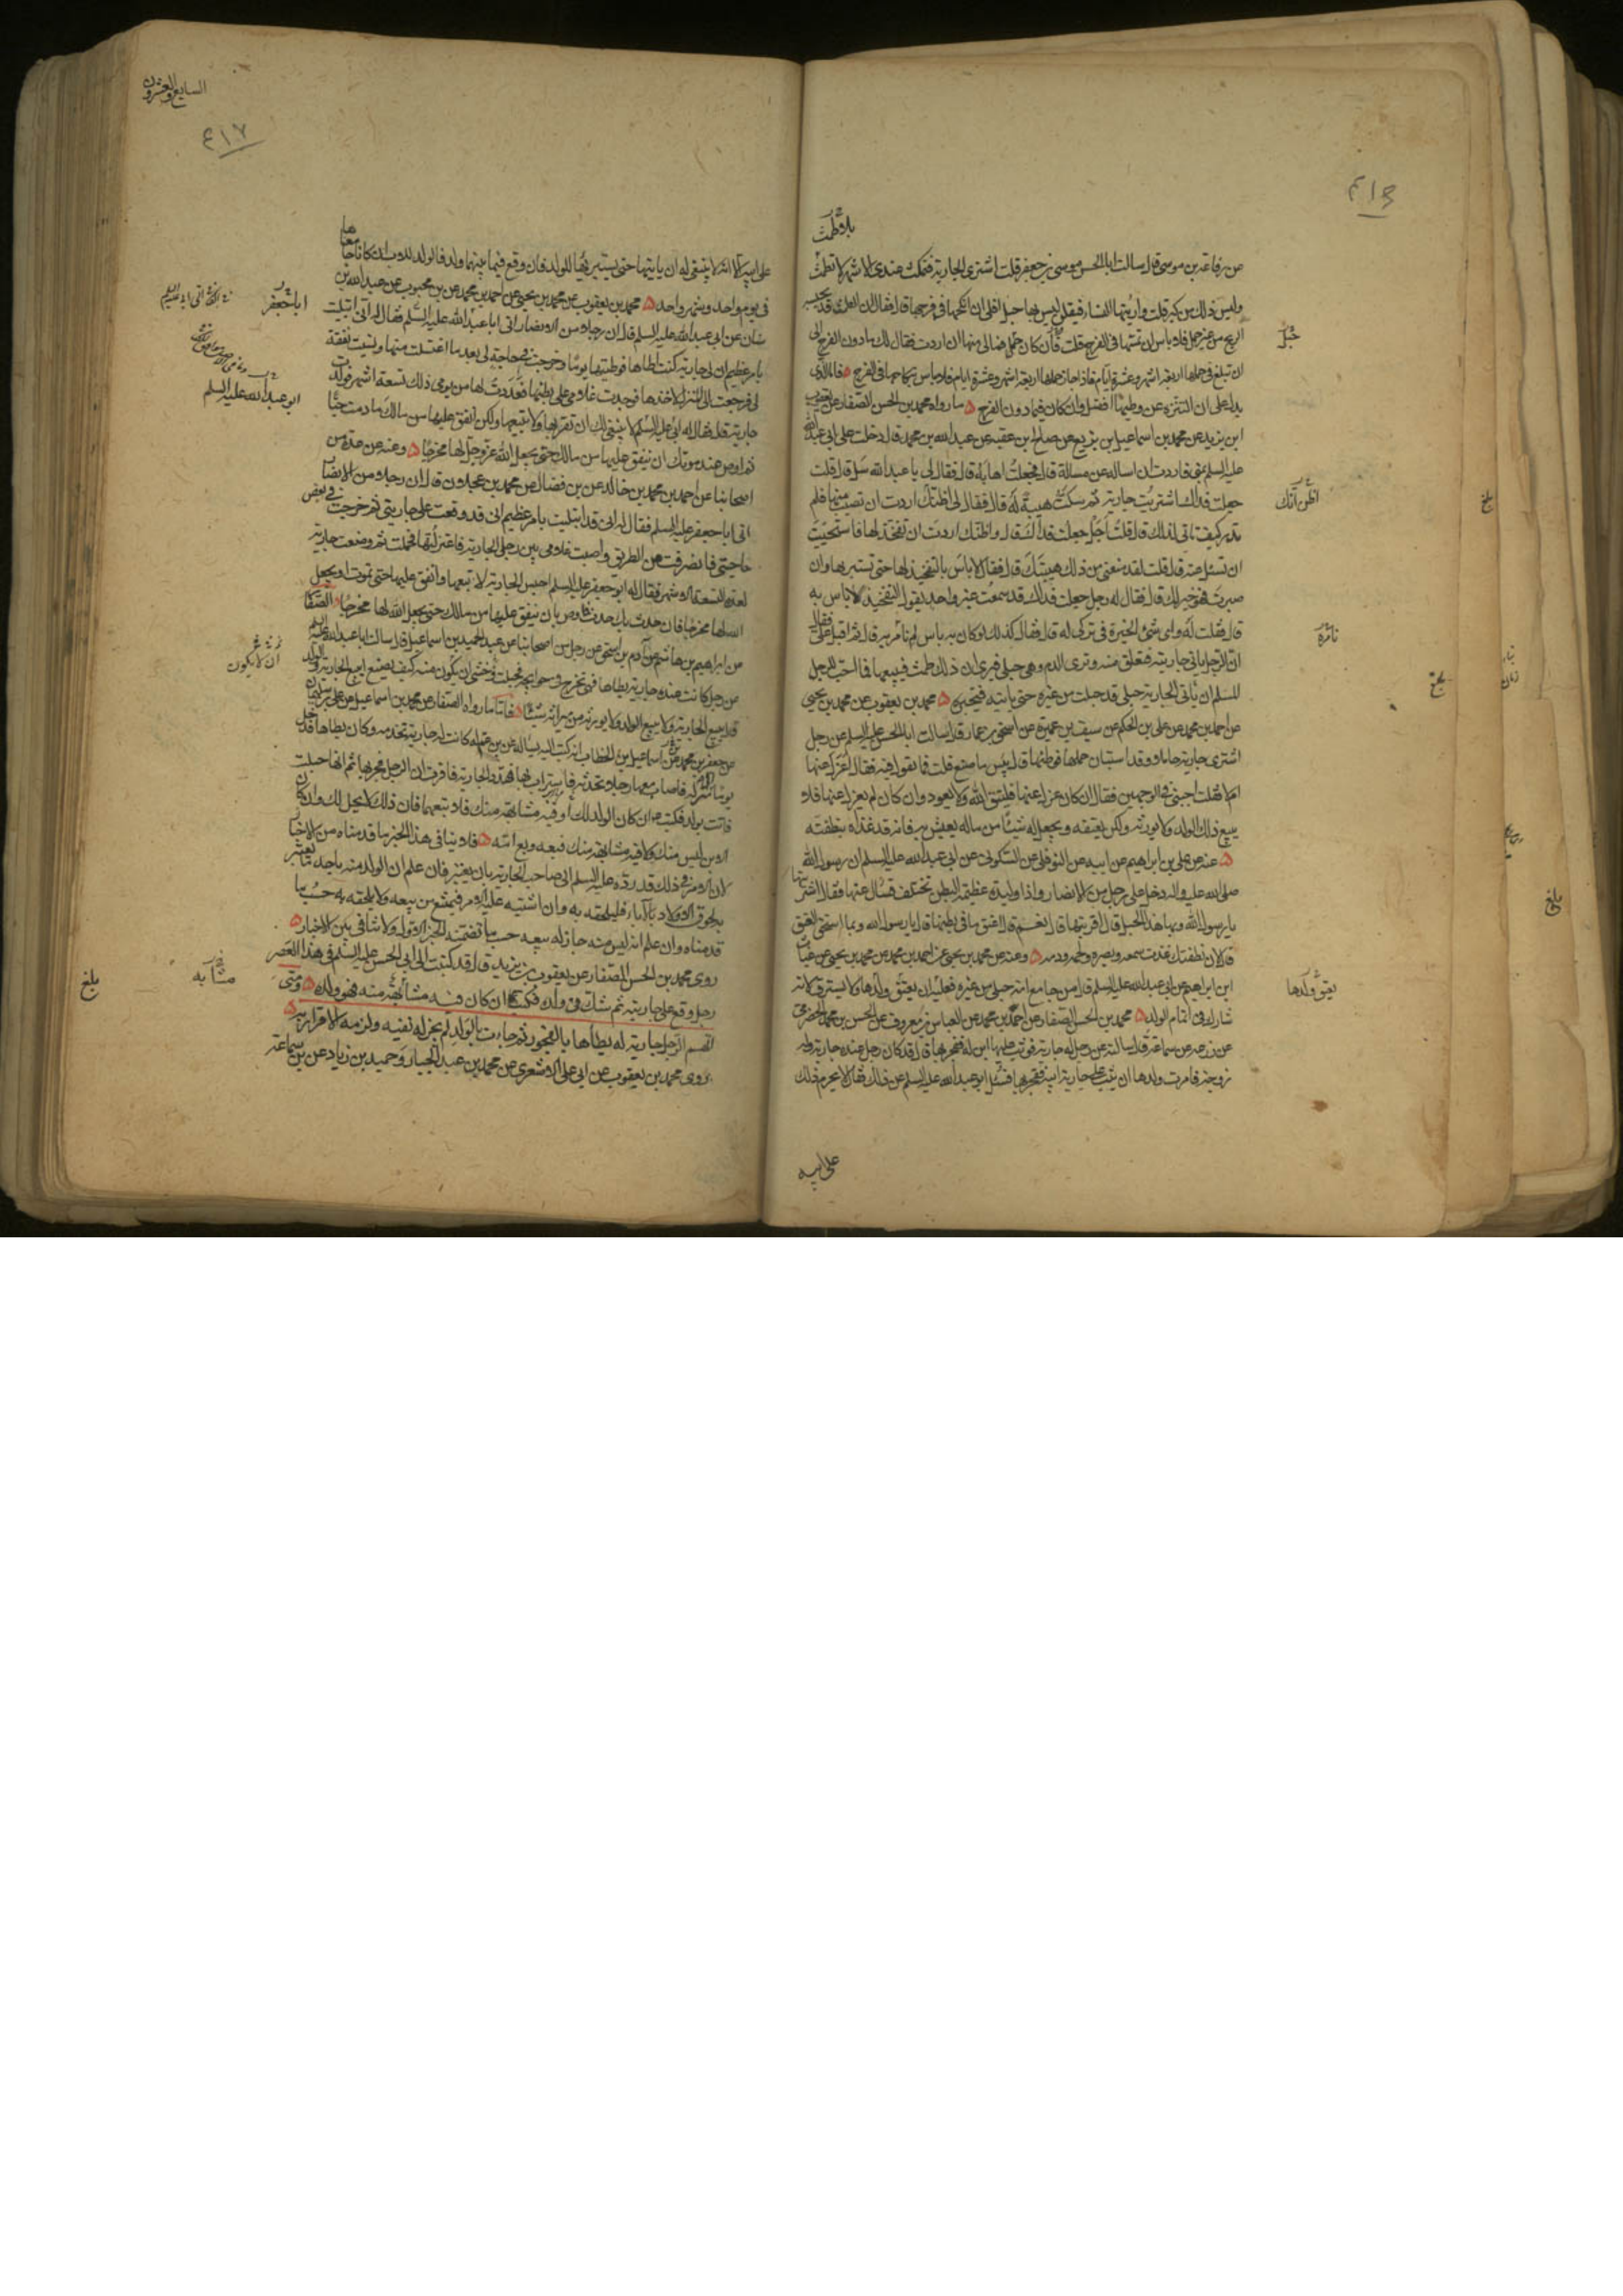 بلا طمث
عن رفاعة بن موسى قال سالت ابا الحسن موسى بن جعفر قلت اشترى الجارية فتمكث عندى الاشهر لا تطمث
وليس ذلك من كبر قلت واريتها النساء فيقلن ليس بها حبل افلى ان انكحها فى فرجها قال فقال ان الطمث قد تحبسه
الريح من غير حبل فلا باس ان تمسها فى الفرج قلت فان كان حمل فما لى منها ان اردت فقال لك ما دون الفرج الى
ان تبلغ فى حملها اربعة اشهر وعشرة ايام فاذا جاز حملها اربعة اشهر وعشرة ايام فلا باس بنكاحها فى الفرج فاما الذى
يدل على ان التنزه عن وطيها افضل وان كان فيما دون الفرج ما رواه محمد بن الحسن الصفار عن يعقوب
ابن يزيد عن محمد بن اسماعيل بن بزيع عن صالح بن عقبة عن عبد الله بن محمد قال دخلت على ابى عبد الله
عليه السلم بمنى فاردت ان اساله عن مسالة قال فجعلت اهابه قال فقال لى يا عبد الله سل قال قلت
جعلت فداك اشتريت جارية ثم سكت هيبة له قال فقال لى اظنك اردت ان تصيب منها فلم
تدر كيف تاتى لذلك قال قلت اجل جعلت فداك قال واظنك اردت ان تفخذ لها فاستحييت
ان تسئل عنه قال قلت لقد منعنى من ذلك هيبتك قال فقال لا باس بالتفخيذ لها حتى تستبريها وان
صبرت فهو خير لك قال فقال له رجل جعلت فداك قد سمعت غير واحد يقول التفخيذ لا باس به
قال قلت له واى شئ الخيرة فى تركى له قال فقال كذلك لو كان به باس لم نامر به قال ثم اقبل على فقال
ان الرجل ياتى جاريته فتعلق منه وترى الدم وهى حبلى فيرى ان ذلك طمث فيبيعها فما احب للرجل
المسلم ان ياتى الجارية حبلى قد حبلت من غيره حتى ياتيه فيخبره محمد بن يعقوب عن محمد بن يحيى
عن احمد بن محمد عن على بن الحكم عن سيف بن عميرة عن اسحق بن عمار قال سالت ابا الحسن عليه السلم عن رجل
اشترى جارية حاملا وقد استبان حملها فوطئها قال بئس ما صنع قلت فما تقول فيه فقال اعزل عنها
ام لا فقلت اجبنى فى الوجهين فقال ان كان عزل عنها فليتق الله ولا يعود وان كان لم يعزل عنها فلا
يبيع ذلك الولد ولا يورثه ولكن يعتقه ويجعل له شيئا من ماله يعيش به فانه قد غذاه بنطفته
عنه عن على بن ابراهيم عن ابيه عن النوفلى عن السكونى عن ابى عبد الله عليه السلم ان رسول الله
صلى الله عليه واله دخل على رجل من الانصار واذا وليدة عظيمة البطن تختلف فسال عنها فقال اشتريتها
يا رسول الله وبها هذا الحبل قال اقربتها قال نعم قال اعتق ما فى بطنها قال يا رسول الله وبما استحق العتق
قال لان نطفتك غذت سمعه وبصره ولحمه ودمه وعنه عن محمد بن يحيى عن احمد بن محمد عن محمد بن يحيى عن غياث
ابن ابراهيم عن ابى عبد الله عليه السلم قال من جامع امة حبلى من غيره فعليه ان يعتق ولدها ولا يسترق لانه
شارك فى اتمام الولد محمد بن الحسن الصفار عن احمد بن محمد عن العباس بن معروف عن الحسن بن محمد الحضرمى
عن زرعة عن سماعة قال سالته عن رجل له جارية فوثب عليها ابن له ففجر بها قال قد كان رجل عنده جارية وله
زوجة فامرت ولدها ان يثب على جارية ابيه ففجر بها فسئل ابو عبد الله عليه السلم عن ذلك فقال لا يحرم ذلك
على ابيه
حبل
اظن انك
نامره
يعتق ولدها
بلغ
بلغ
السابع والعشرون
٤١٧
على ابيه الا انه لا ينبغى له ان ياتيها حتى يستبريها للولد فان وقع فيما بينهما ولد فالولد للاب ان كانا جامعاها
فى يوم واحد وشهر واحد محمد بن يعقوب عن محمد بن يحيى عن احمد بن محمد عن بن محبوب عن عبد الله بن
سنان عن ابى عبد الله عليه السلم قال ان رجلا من الانصار اتى ابا عبد الله عليه السلم فقال له انى ابتليت
بامر عظيم ان لى جارية كنت اطاها فوطئتها يوما وخرجت فى حاجة لى بعد ما اغتسلت منها ونسيت نفقة
لى فرجعت الى المنزل لاخذها فوجدت غلامى على بطنها فعددت لها من يومى ذلك تسعة اشهر فولدت
جارية قال فقال له ابى عليه السلم لا ينبغى لك ان تقربها ولا تبيعها ولكن انفق عليها من مالك ما دمت حيا
ثم اوص عند موتك ان ينفق عليها من مالك حتى يجعل الله عز وجل لها مخرجا وعنه عن عدة من
اصحابنا عن احمد بن محمد بن خالد عن بن فضال عن محمد بن عجلان قال ان رجلا من الانصار
اتى ابا جعفر عليه السلم فقال له انى قد ابتليت بامر عظيم انى قد وقعت على جاريتى ثم خرجت فى بعض
حاجتى فانصرفت من الطريق واصبت غلامى بين رجلى الجارية فاعتزلتها فحملت ثم وضعت جارية
لعدة التسعة الاشهر فقال له ابو جعفر عليه السلم احبس الجارية لا تبعها وانفق عليها حتى تموت او يجعل
الله لها مخرجا فان حدث بك حدث فاوص بان ينفق عليها من مالك حتى يجعل الله لها مخرجا الصفار
عن ابراهيم بن هاشم عن ادم بن اسحق عن رجل من اصحابنا عن عبد الحميد بن اسماعيل قال سالت ابا عبد الله عليه السلم
عن رجل كانت عنده جارية يطاها فهى تخرج فى حوائجه فحبلت فخشى ان يكون منه كيف يصنع ابيع الجارية والولد
قال يبيع الجارية ولا يبيع الولد ولا يورثه من ميراثه شيئا فاما ما رواه الصفار عن محمد بن اسماعيل عن على بن سليمان
عن جعفر بن محمد بن اسماعيل بن الخطاب انه كتب اليه يساله عن بن عم له كانت له جارية تخدمه وكان يطاها فدخل
يوما منزله فاصاب معها رجلا تحدثه فاستراب بها فهدد الجارية فاقرت ان الرجل فجر بها ثم انها حبلت
فاتت بولد فكتب ان كان الولد لك او فيه مشابهة منك فلا تبعهما فان ذلك لا يحل لك وان كان
الابن ليس منك ولا فيه مشابهة منك فبعه وبع امه فلا ينافى هذا الخبر ما قدمناه من الاخبار
لان الامر فى ذلك قد رده عليه السلم الى صاحب الجارية بان يعتبر فان علم ان الولد منه باحد ما يعتبر
به لحوق الاولاد بالاباء فليلحقه به وان اشتبه عليه الامر فيمتنع من بيعه ولا يلحقه به حسب ما
قدمناه وان علم انه ليس منه جاز له بيعه حسب ما تضمنه الخبر الاول ولا تنافى بين الاخبار
روى محمد بن الحسن الصفار عن يعقوب بن يزيد قال قد كتبت الى ابى الحسن عليه السلم فى هذا العصر
رجل وقع على جاريته ثم شك فى ولده فكتب ان كان فيه مشابهة منه فهو ولده ومتى
اتهم الرجل جارية له يطأها بالفجور ثم جاءت بالولد لم يجز له نفيه ولزمه الاقرار به
روى محمد بن يعقوب عن ابى على الاشعرى عن محمد بن عبد الجبار وحميد بن زياد عن بن سماعة
ابا جعفر
ابو عبد الله عليه السلم
ان لا يكون
مشابه
بلغ